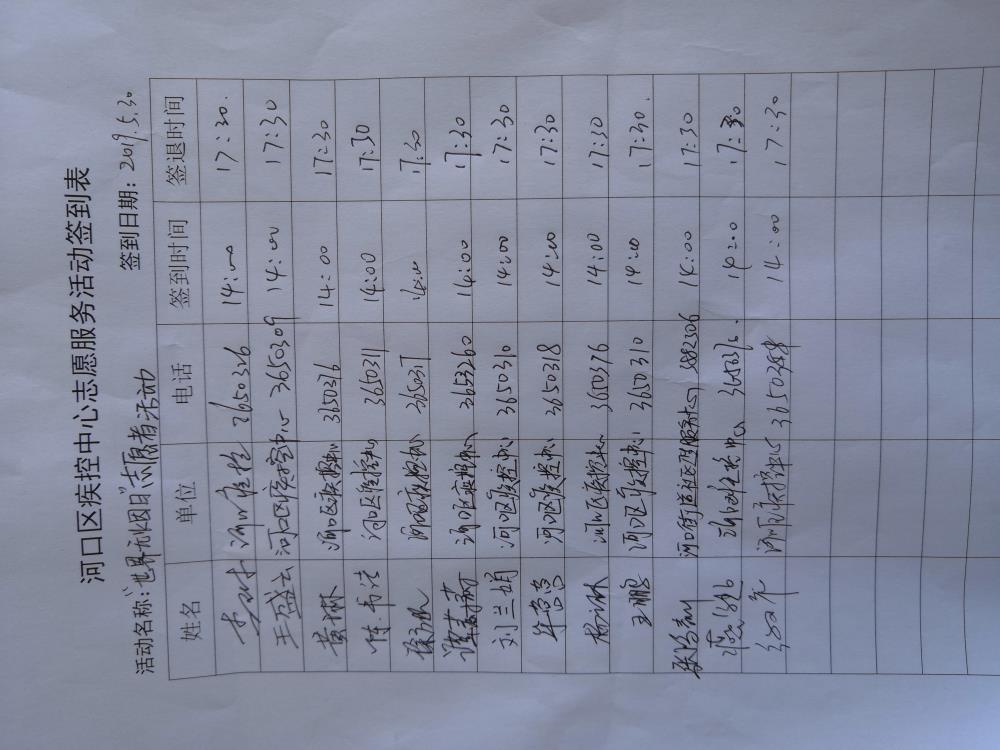 河口区疾控中心志愿服务活动签到表
活动名称：“世界无烟日”志愿者活动 签到日期：2019.5.30
姓名 单位 电话 签到时间 签退时间
河口疾控 3650316 14:00 17:30.
王盛云 河口区疾控中心 3650309 14:00 17:30
黄林 河口区疾控中心 3650376 14:00 17:30
陈书浩 河口区疾控中心 3650311 14:00 17:30
河口区疾控中心 14:00 17:30
河口区疾控中心 3653260 14:00 17:30
刘兰娟 河口区疾控中心 3650310 14:00 17:30
牟营营 河口区疾控中心 3650318 14:00 17:30
杨林 河口区疾控中心 3650376 14:00 17:30
王鹏 河口区疾控中心 3650310 14:00 17:30.
河口街道社区服务中心 14:00 17:30
14:00 17:30
14:00 17:30